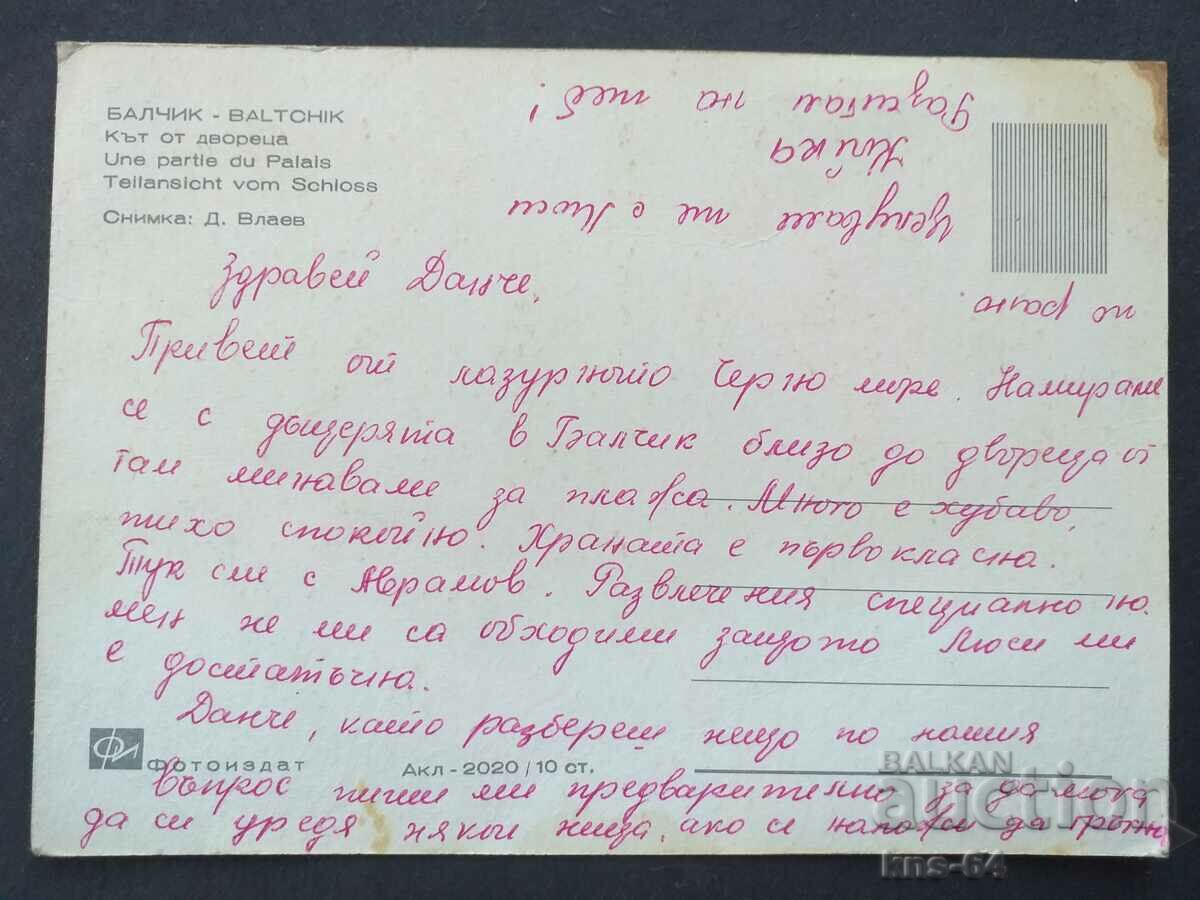 БАЛЧИК - BALTCHIK
Кът от двореца
Une partie du Palais
Teilansicht vom Schloss
Снимка: Д. Влаев
Здравей Данче,
Привет от лазурното Черно море. Намираме
се с дъщерята в Балчик близо до двореца от
там минаваме за плажа. Много е хубаво,
тихо спокойно. Храната е първокласна.
Тук сме с Аврамов. Развлечения специално на
мен не ми са обходими защото Люси ми
е достатъчна.
Данче, като разбереш нещо по нашия
въпрос пиши ми предварително за да мога
да си уредя някои неща, ако се наложи да тръгна
по рано
Целуваме те с Люси
Кийка
Разчитам на теб!
ФОТОИЗДАТ
Акл - 2020 / 10 ст.
BALKAN
auction
kns-64